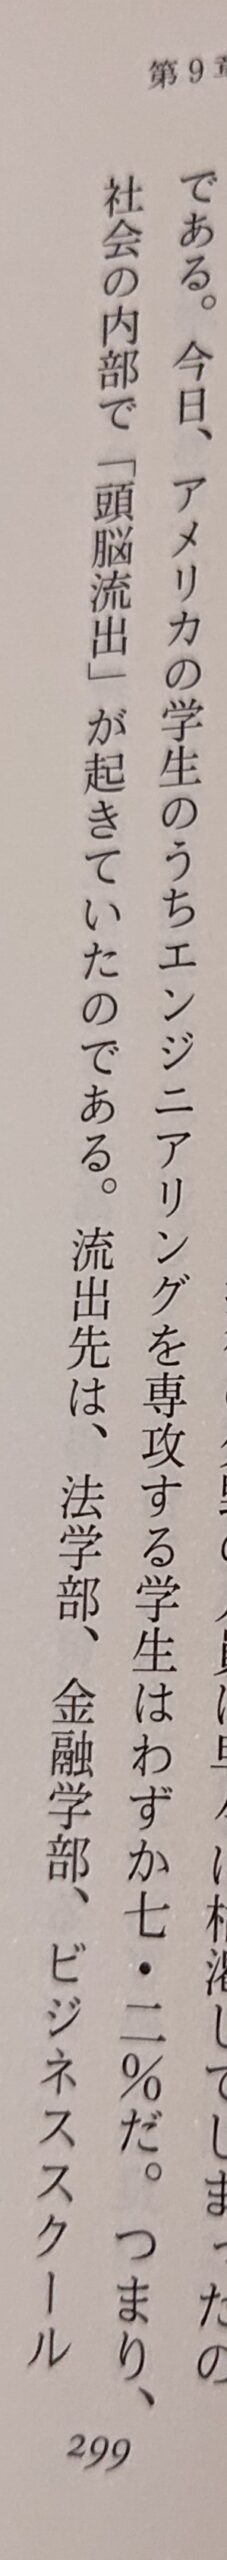 第9章
枯渇してしまったの
である。今日、アメリカの学生のうちエンジニアリングを専攻する学生はわずか七・二%だ。つまり、
社会の内部で「頭脳流出」が起きていたのである。流出先は、法学部、金融学部、ビジネススクール
299